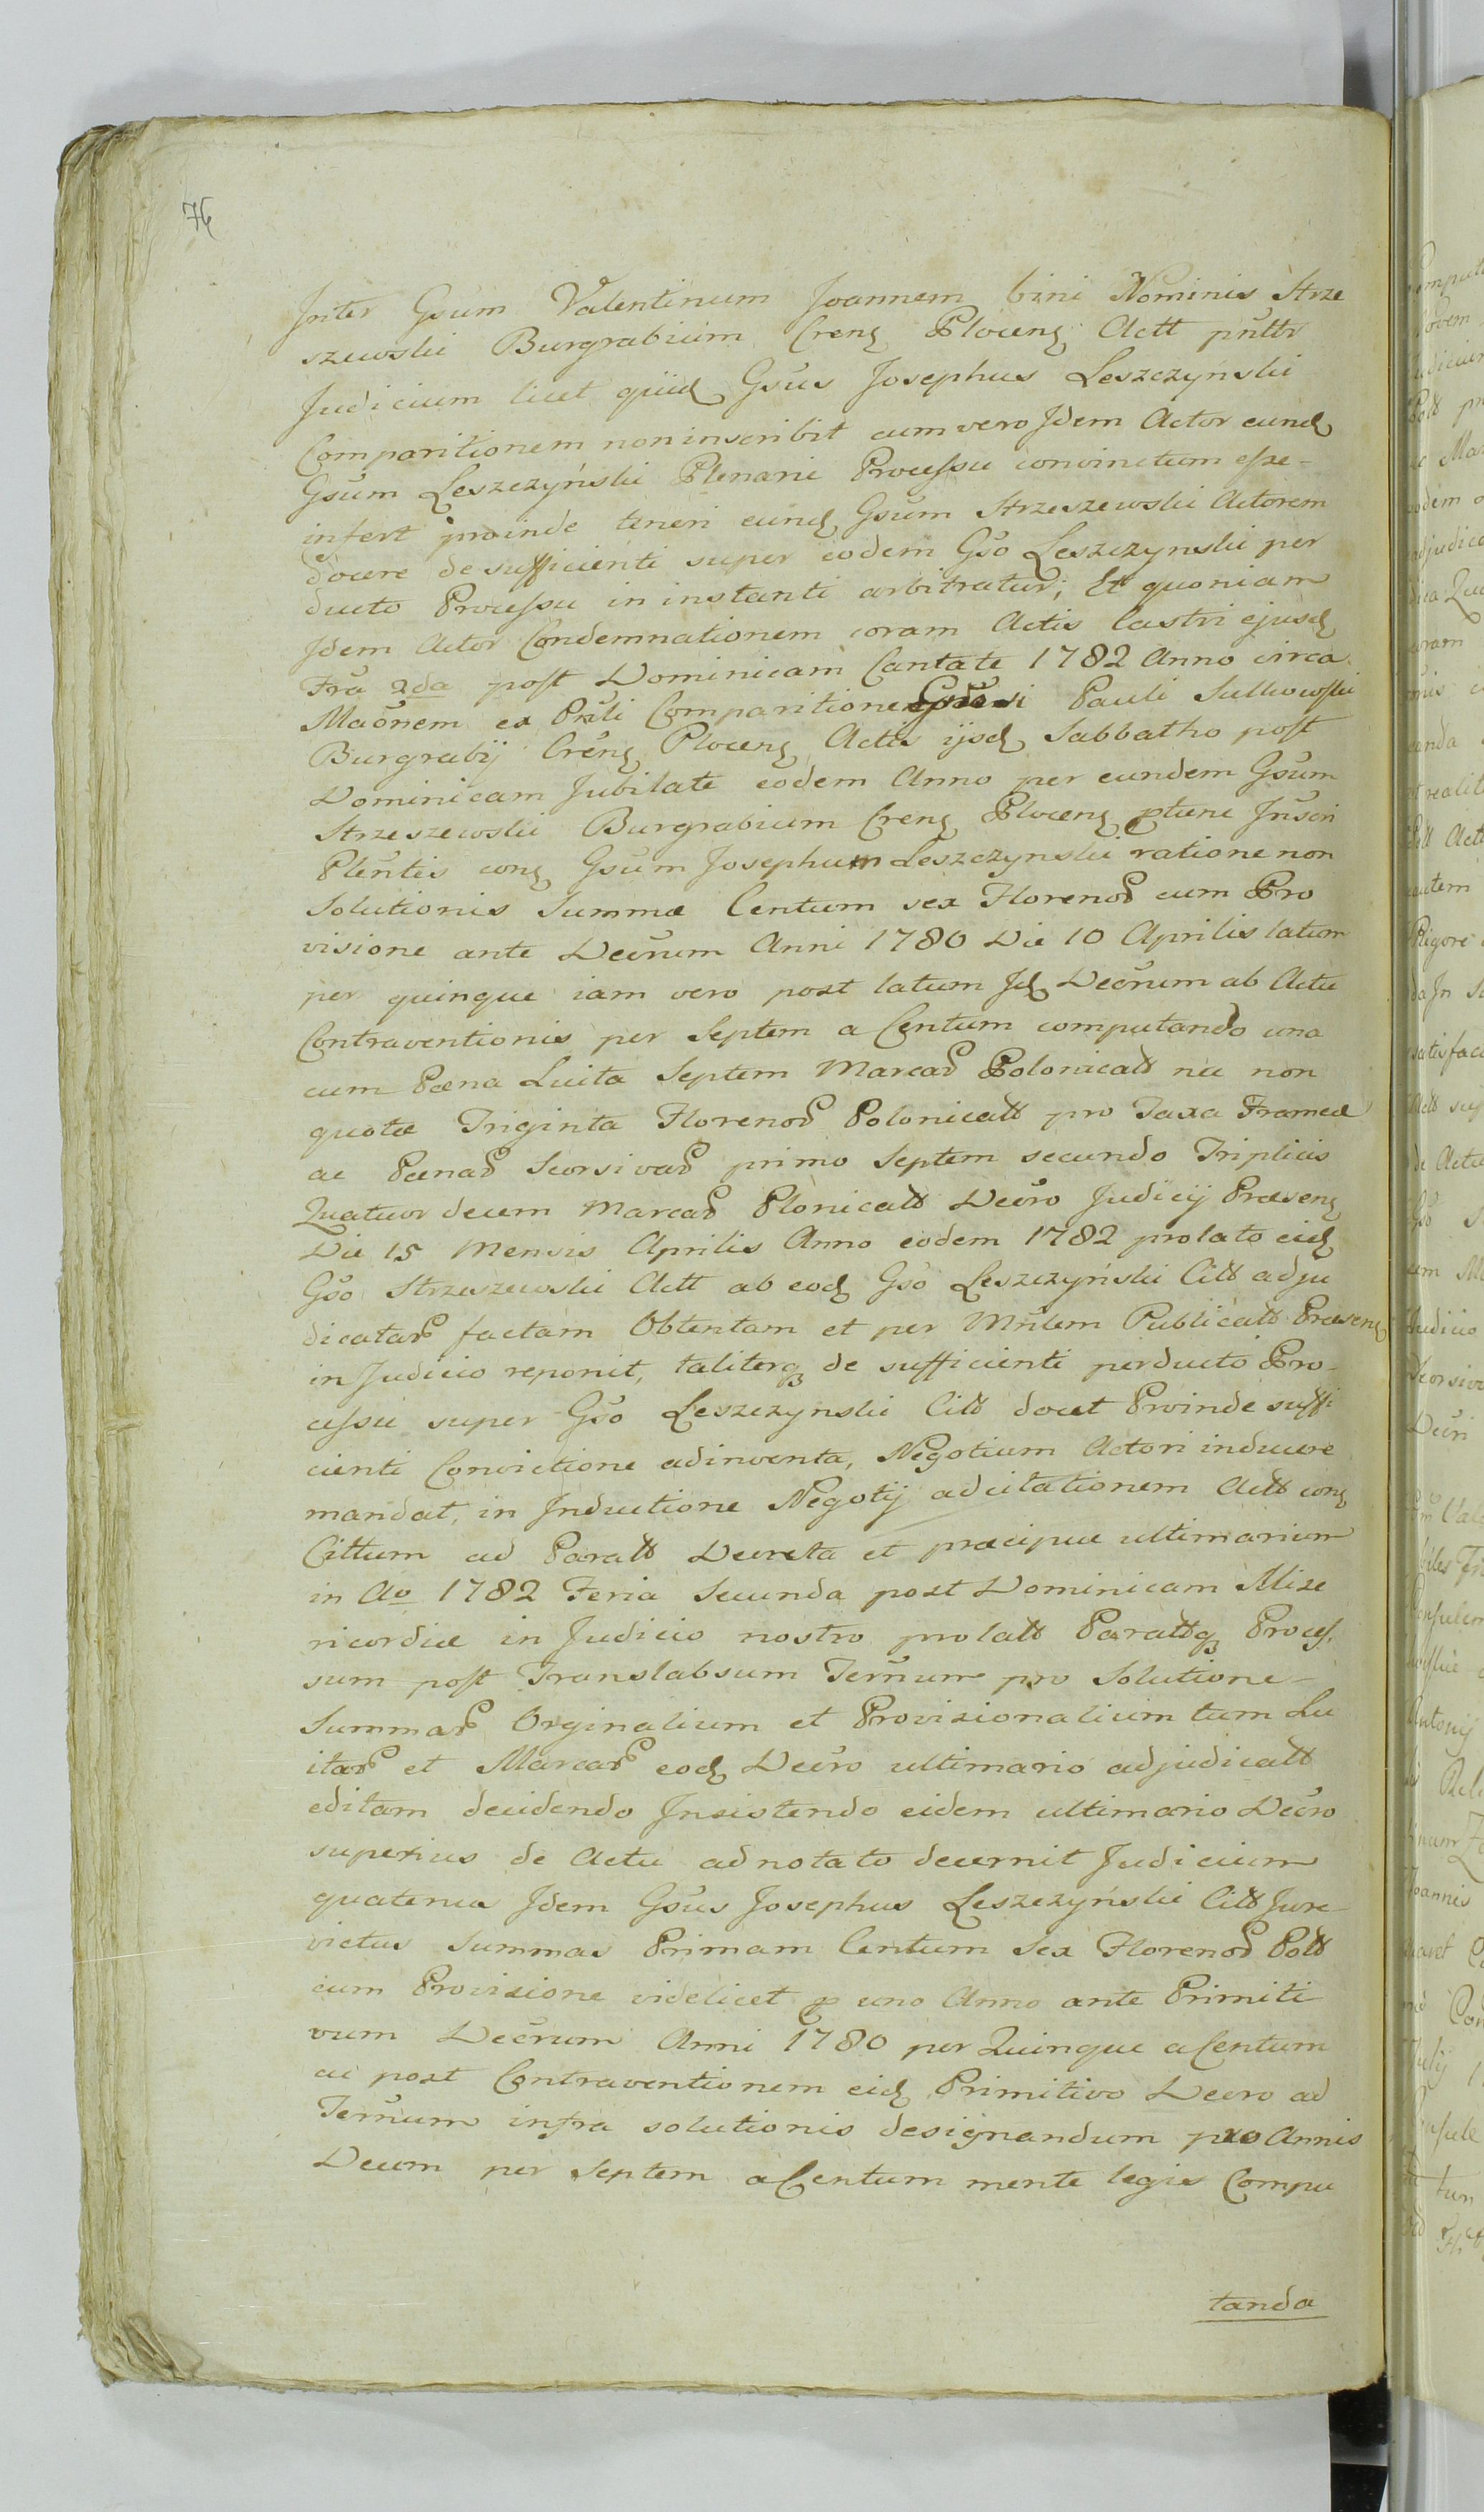 76
Inter Gsum Valentinum Joannem bini Nominis Strze
szewski Burgrabium Crens Plocens Actt pnttr
Judicium licet quid Gsus Josephus Leszczyński
Comparitionem non inscribit cum vero Idem Actor eund
Gsum Leszczyński Plenarie Processu convinctum esse
infert proinde teneri eund Gsum Strzeszewski Actorem
docere de sufficienti super eodem Gso Leszczynski per
ducto Processu in instanti arbitratur; Et quoniam
Idem Actor Condemnationem coram Actis Castri ejusd
Fra 2da post Dominicam Cantate 1782 Anno circa
Maonem ex Prsli Comparitione Pauli Sulkowski
Burgrabij Crens Plocens Actis ijsd Sabbatho post
Dominicam Jubilate eodem Anno per eundem Gsum
Strzeszewski Burgrabium Crens Plocens ptunc Inscri
Plentis cons Gsum Josephum Leszczynski ratione non
Solutionis Summæ Centum sex Florenor cum Pro
visione ante Decrum Anni 1780 Die 10 Aprilis latum
per quinque iam vero post latum Id Decrum ab Actu
Contraventionis per Septem a Centum computando una
cum Pæna Luita Septem Marcar Polonicall nec non
quotæ Triginta Florenor Polonicall pro Taxa Frameæ
ac Pænar Seorsivar primo Septem secundo Triplicis
Quatuor decem Marcar Plonicall Decro Judicij Præsens
Die 15 Mensis Aprilis Anno eodem 1782 prolato eid
Gso Strzeszewski Actt ab eod Gso Leszczyński Citt adju
dicatar factam Obtentam et per Mnlem Publicatt Præsens
in Judicio reponit, taliterq de sufficienti perducto Pro-
cessu super Gso Leszczynski Citt docet Proinde suffi
cienti Convictione adinventa, Negotium Actori inducere
mandat, in Inductione Negotij ad citationem Actt cons
Cittum ad Paratt Decreta et præcipue ultimarium
in Ao 1782 Feria Secunda post Dominicam Mise
ricordiæ in Judicio nostro prolatt Parattq Proces,
sum post Translabsum Ternum pro Solutione
Summar Orginalium et Provisionalium tum Lu
itar et Marcar eod Decro ultimario adjudicatt
editam decidendo Insistendo eidem ultimario Decro
superius de Actu adnotato decernit Judicium
quatenus Idem Gsus Josephus Leszczyński Citt Jure
victus Summas Primam Centum Sex Florenor Poll
cum Provisione videlicet p uno Anno ante Primiti
vum Decrum Anni 1780 per Quinque a Centum
ac post Contraventionem eid Primitivo Decro ad
Ternum infra solutionis designandum pro Annis
Decem per Septem a Centum mente legis Compu
tanda